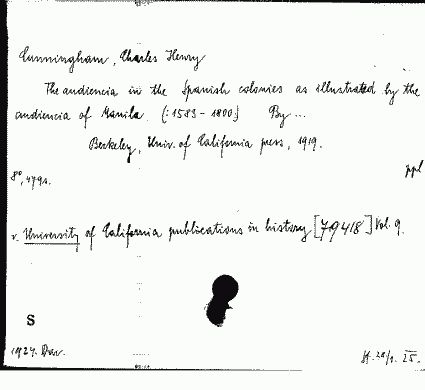 Cunningham, Charles Henry
The audiencia in the Spanish colonies as illustrated by the
audiencia of Manila. (:1583-1800:) By ...
Berkeley, Univ. of California press, 1919.
ppl
8°, 479 s.
v. University of California publications in history [79418] Vol. 9.
S
1924. Dar.